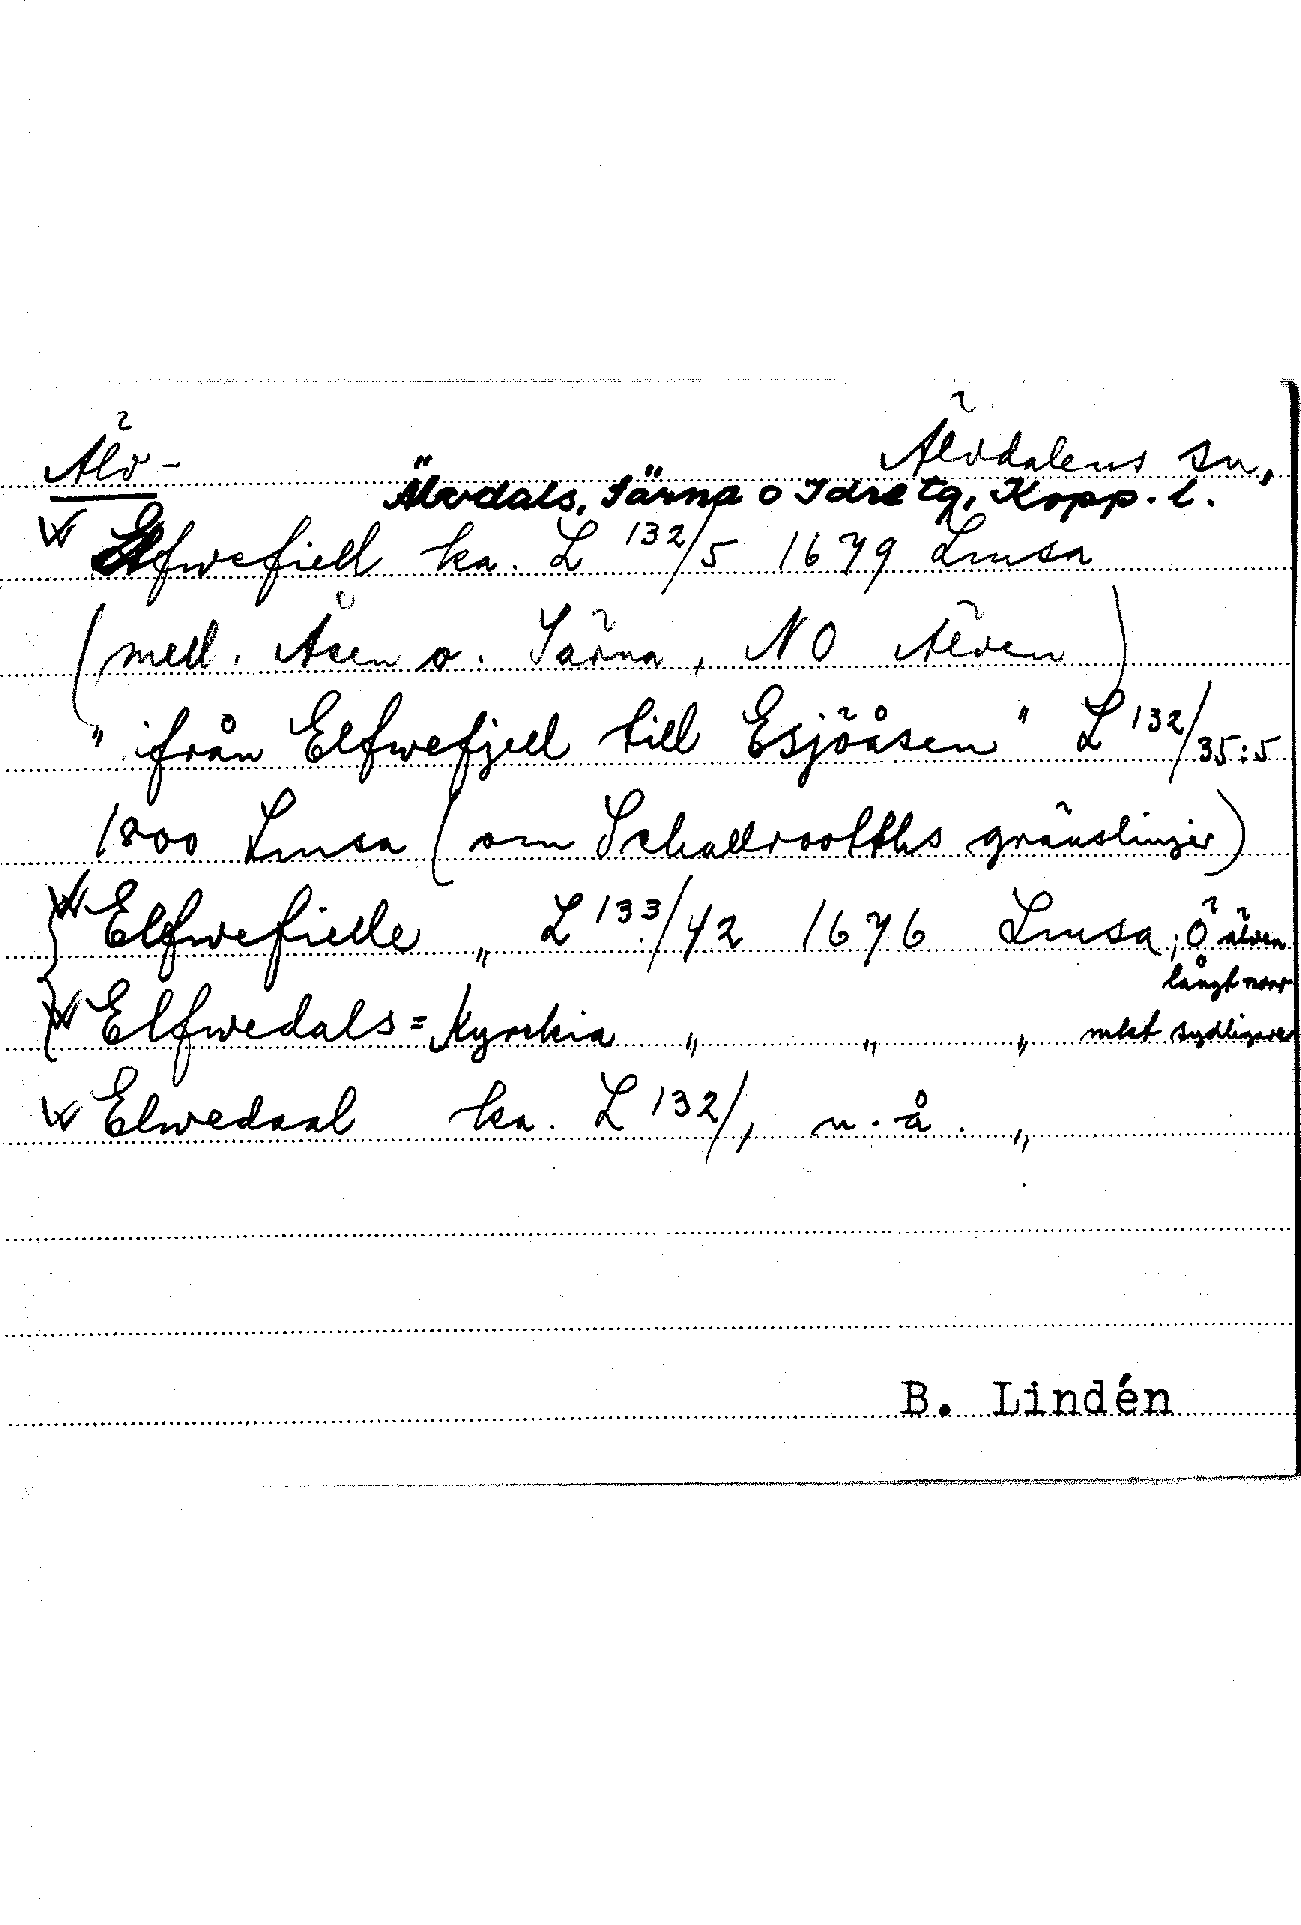 Älv- Älvdalens sn,
Älvdals, Särna o Idre tg, Kopp. l.
Elfwefiell ka. L 132/5 1679 Lmsa
(mell. Åsen o. Särna, NO Älven)
"från Elfwefjell till Esjöåsen" L 132/35:5
1800 Lmsa (om Schallrootths gränslinjer)
Elfwefielle " L 133/42 1676 Lmsa, Ö älven
långt norr
Elfwedals=Kyrckia " " " mkt sydligare
Elwedaal ka. L 132/1 u.å. "
B. Lindén